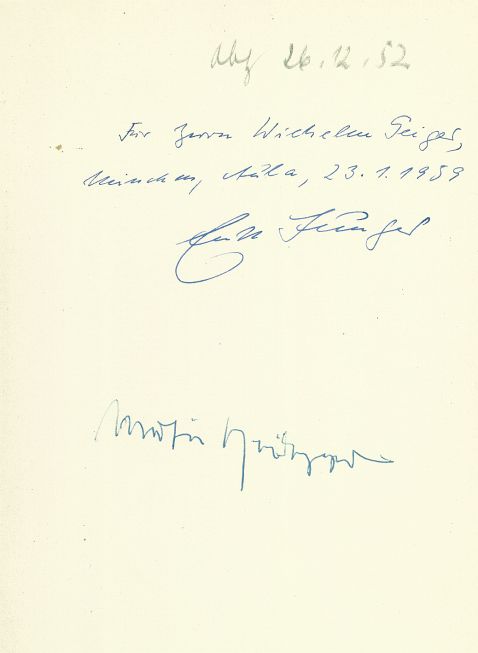 26.12.52
Für Herrn Wilhelm Geiger,
München, Aula, 23.1.1959
Ernst Jünger
Martin Heidegger